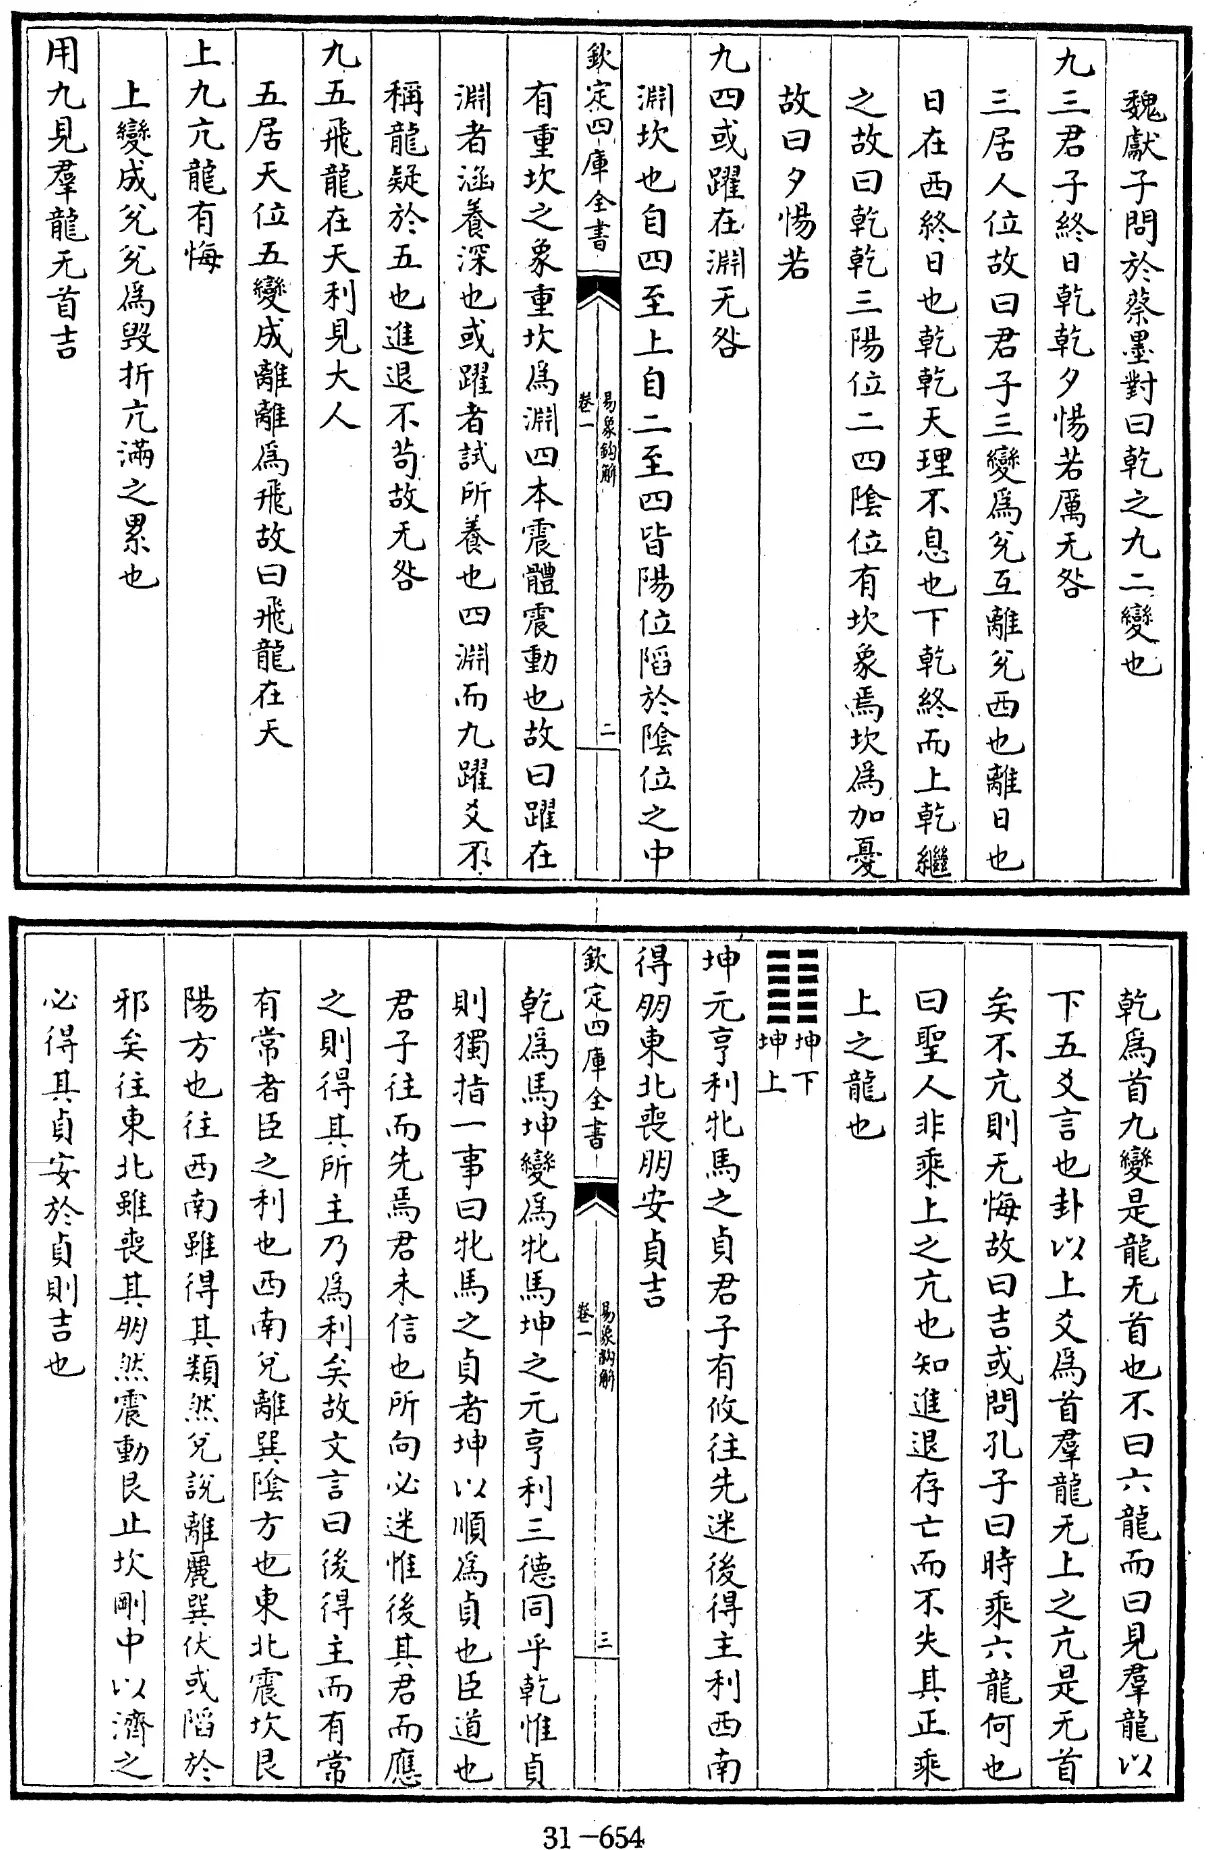 魏獻子問於蔡墨對曰乾之九二變也
九三君子終日乾乾夕惕若厲无咎
三居人位故曰君子三變爲兊互離兊西也離日也
日在西終日也乾乾天理不息也下乾終而上乾繼
之故曰乾乾三陽位二四陰位有坎象焉坎爲加憂
故曰夕惕若
九四或躍在淵无咎
淵坎也自四至上自二至四皆陽位陷於陰位之中
欽定四庫全書
易象鈎解
卷一
二
有重坎之象重坎爲淵四本震體震動也故曰躍在
淵者涵養深也或躍者試所養也四淵而九躍爻不
稱龍疑於五也進退不茍故无咎
九五飛龍在天利見大人
五居天位五變成離離爲飛故曰飛龍在天
上九亢龍有悔
上變成兊兊爲毀折亢滿之累也
用九見羣龍无首吉
乾爲首九變是龍无首也不曰六龍而曰見羣龍以
下五爻言也卦以上爻爲首羣龍无上之亢是无首
矣不亢則无悔故曰吉或問孔子曰時乘六龍何也
曰聖人非乘上之亢也知進退存亡而不失其正乘
上之龍也
坤下
坤上
坤元亨利牝馬之貞君子有攸往先迷後得主利西南
得朋東北喪朋安貞吉
欽定四庫全書
易象鈎解
卷一
三
乾爲馬坤變爲牝馬坤之元亨利三德同乎乾惟貞
則獨指一事曰牝馬之貞者坤以順爲貞也臣道也
君子往而先焉君未信也所向必迷惟後其君而應
之則得其所主乃爲利矣故文言曰後得主而有常
有常者臣之利也西南兊離巽陰方也東北震坎艮
陽方也往西南雖得其類然兊說離麗巽伏或陷於
邪矣往東北雖喪其朋然震動艮止坎剛中以濟之
必得其貞安於貞則吉也
31-654